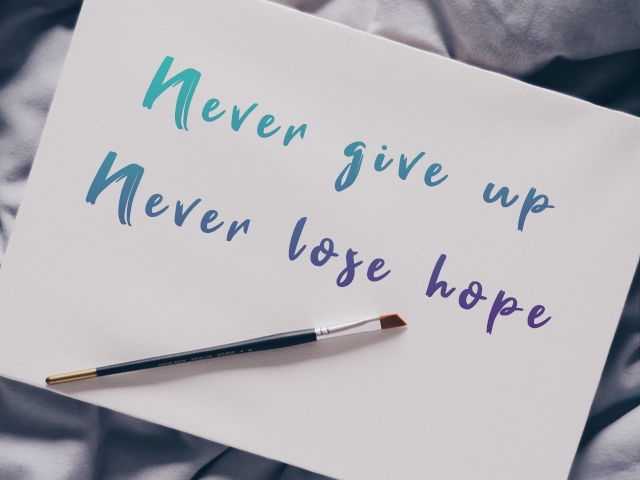 Never give up
Never lose hope